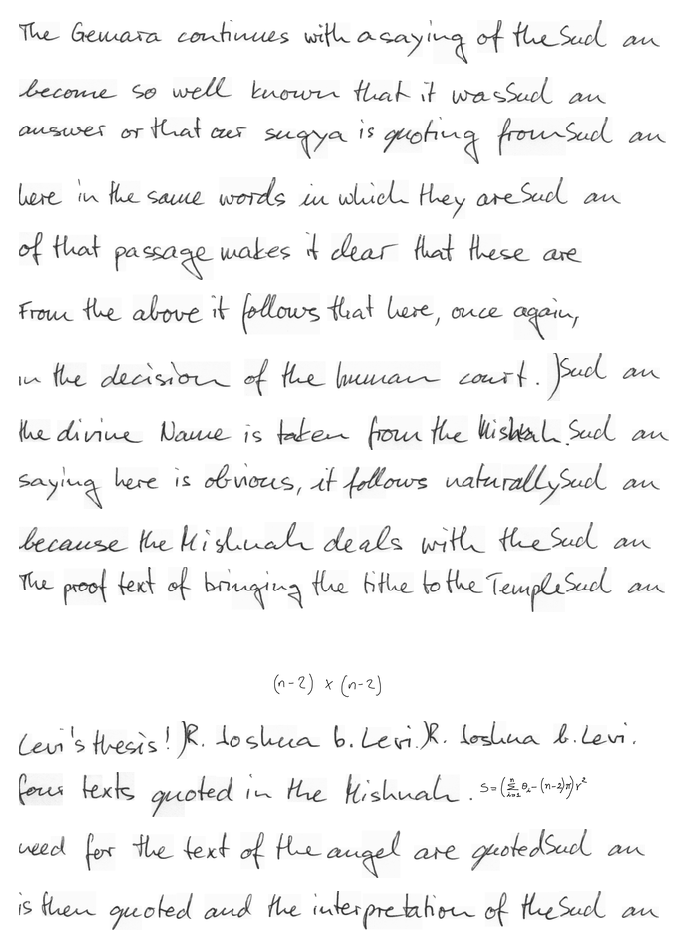 The Gemara continues with a saying of the Sud an
become so well known that it was Sud an
answer or that our sugya is quoting from Sud an
here in the same words in which they are Sud an
of that passage makes it clear that these are
From the above it follows that here, once again,
in the decision of the human court. ) Sud an
the divine Name is taken from the Mishnah. Sud an
saying here is obvious, it follows naturally Sud an
because the Mishnah deals with the Sud an
The proof text of bringing the tithe to the Temple Sud an
(n-2) × (n-2)
Levi's thesis! )R. Joshua b. Levi.)R. Joshua b. Levi.
four texts quoted in the Mishnah. S=(∑_{i=1}^{n} θ_i-(n-2)π)r²
need for the text of the angel are quoted Sud an
is then quoted and the interpretation of the Sud an